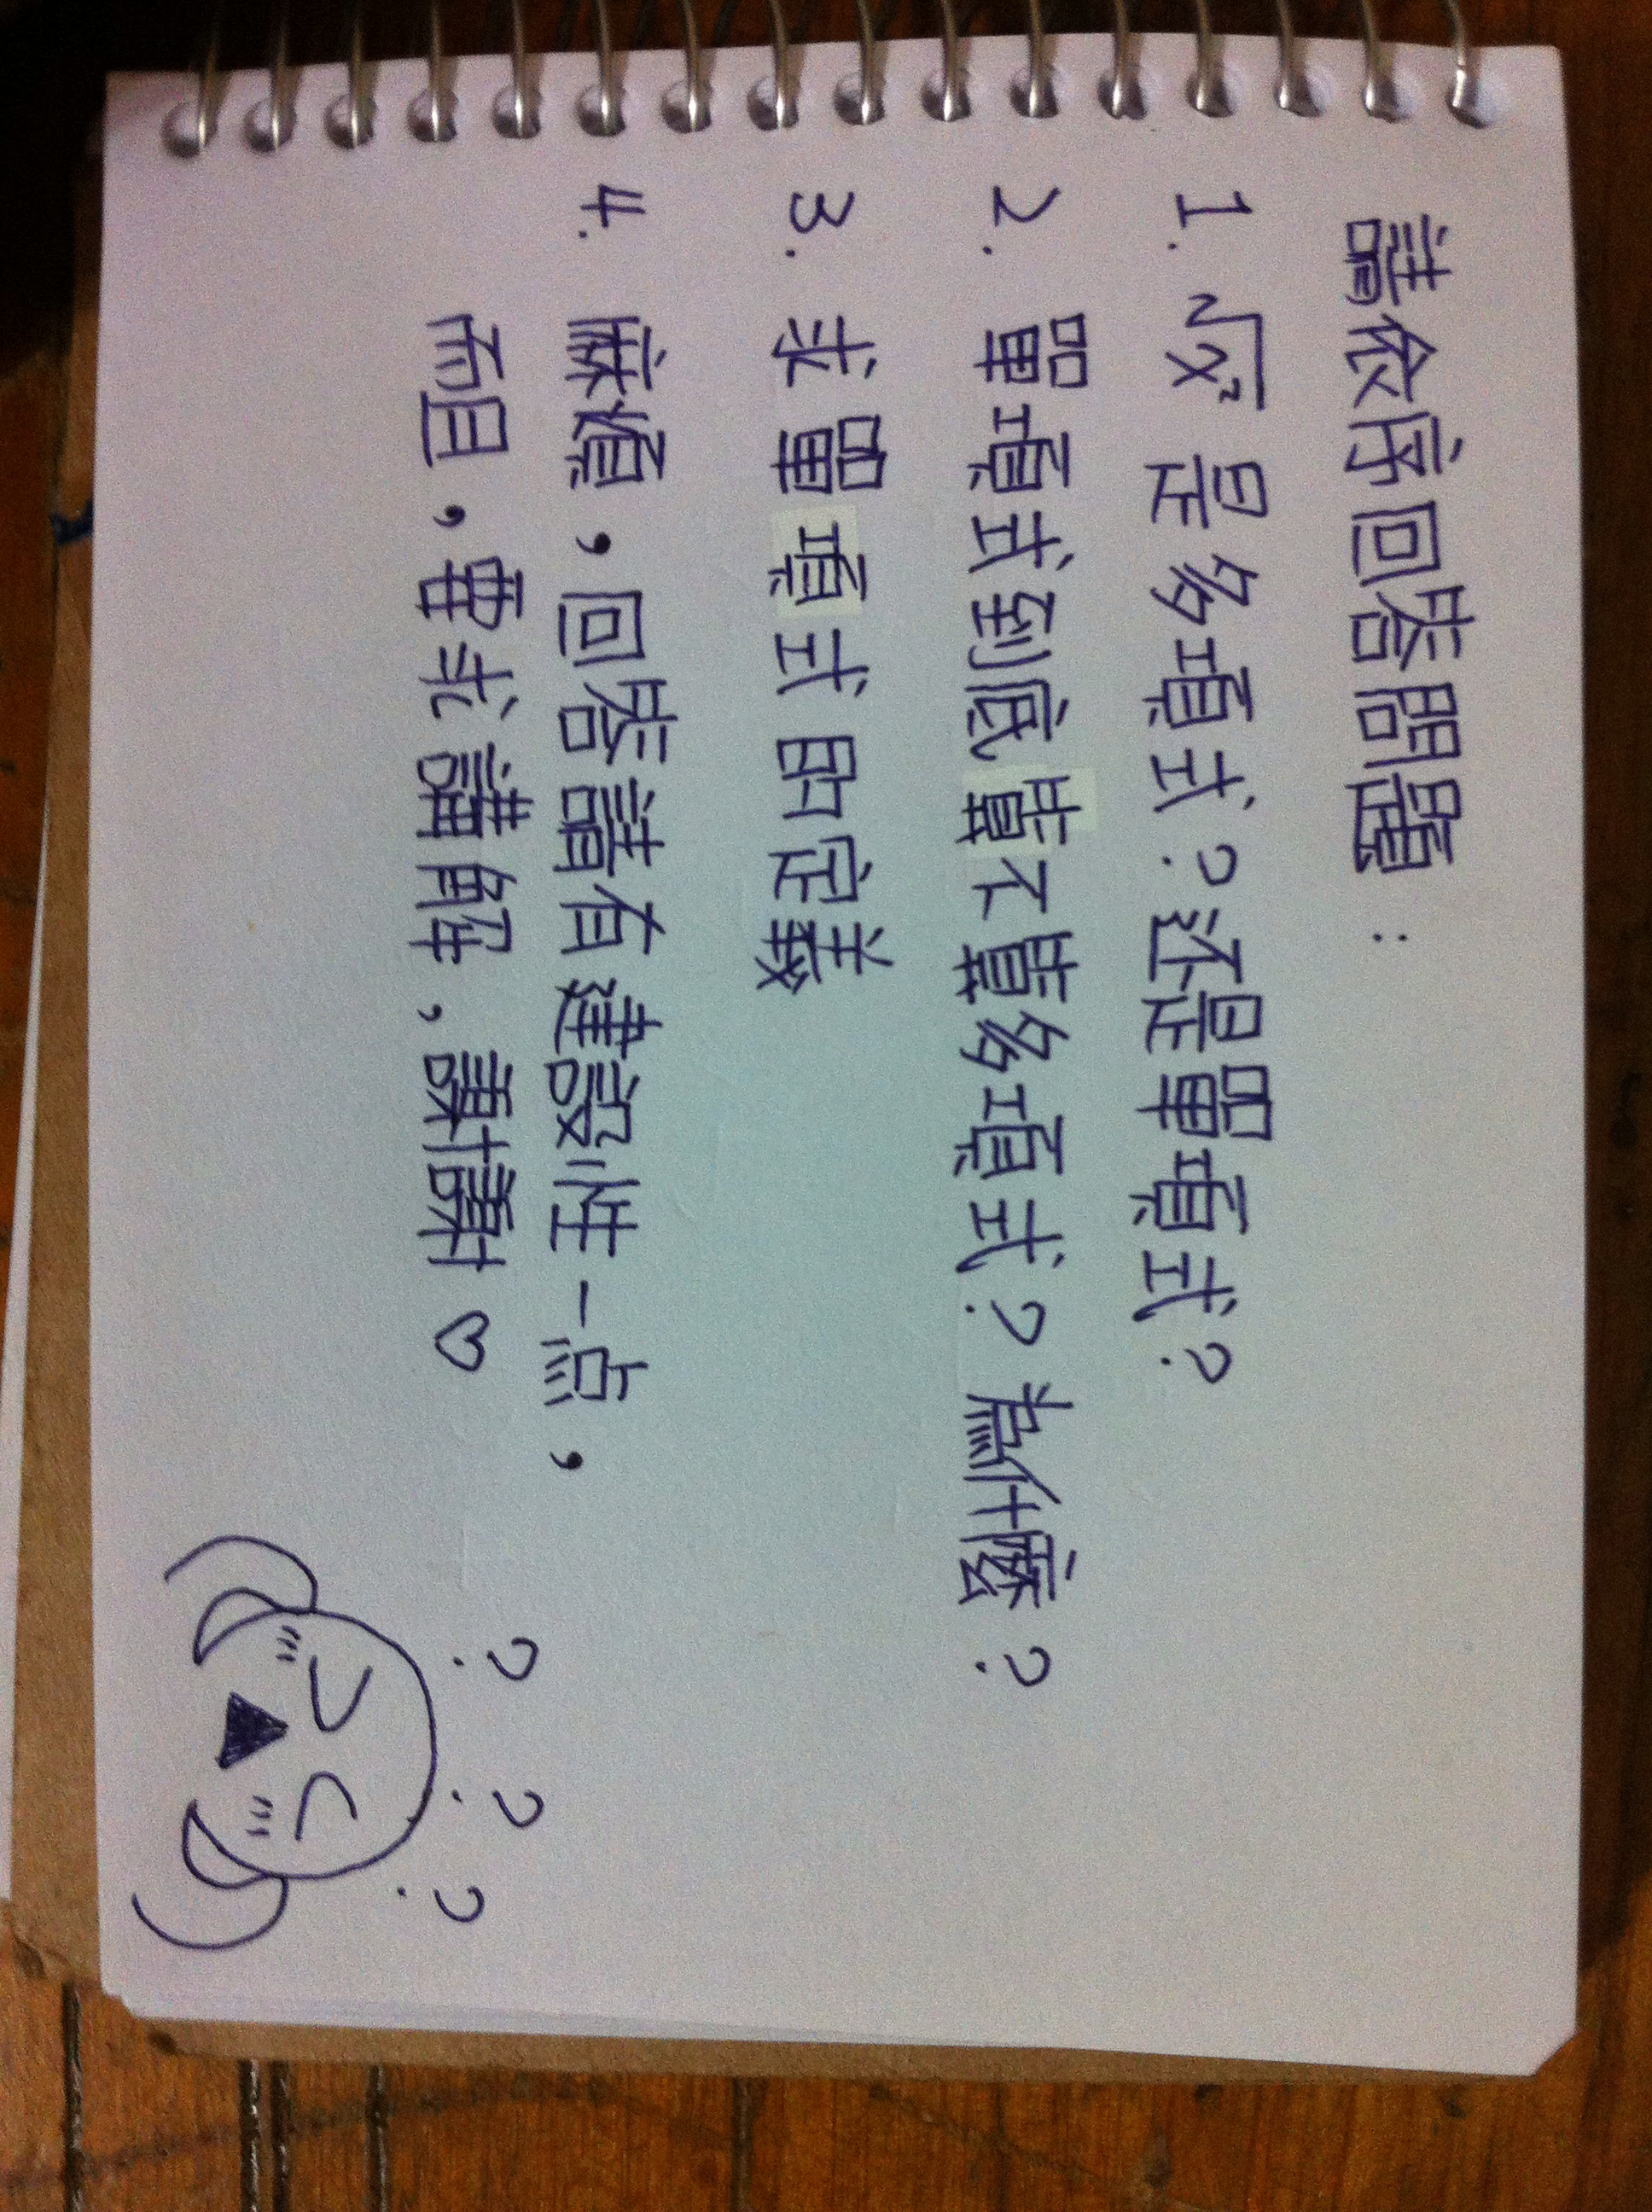 請依序回答問題：
1. √x² 是多項式？还是單項式？
2. 單項式到底賞不賞多項式？為什麼？
3. 求單項式的定義
4. 麻煩，回答請有建設性一点，
而且，要求講解，謝謝♡
? ? ?